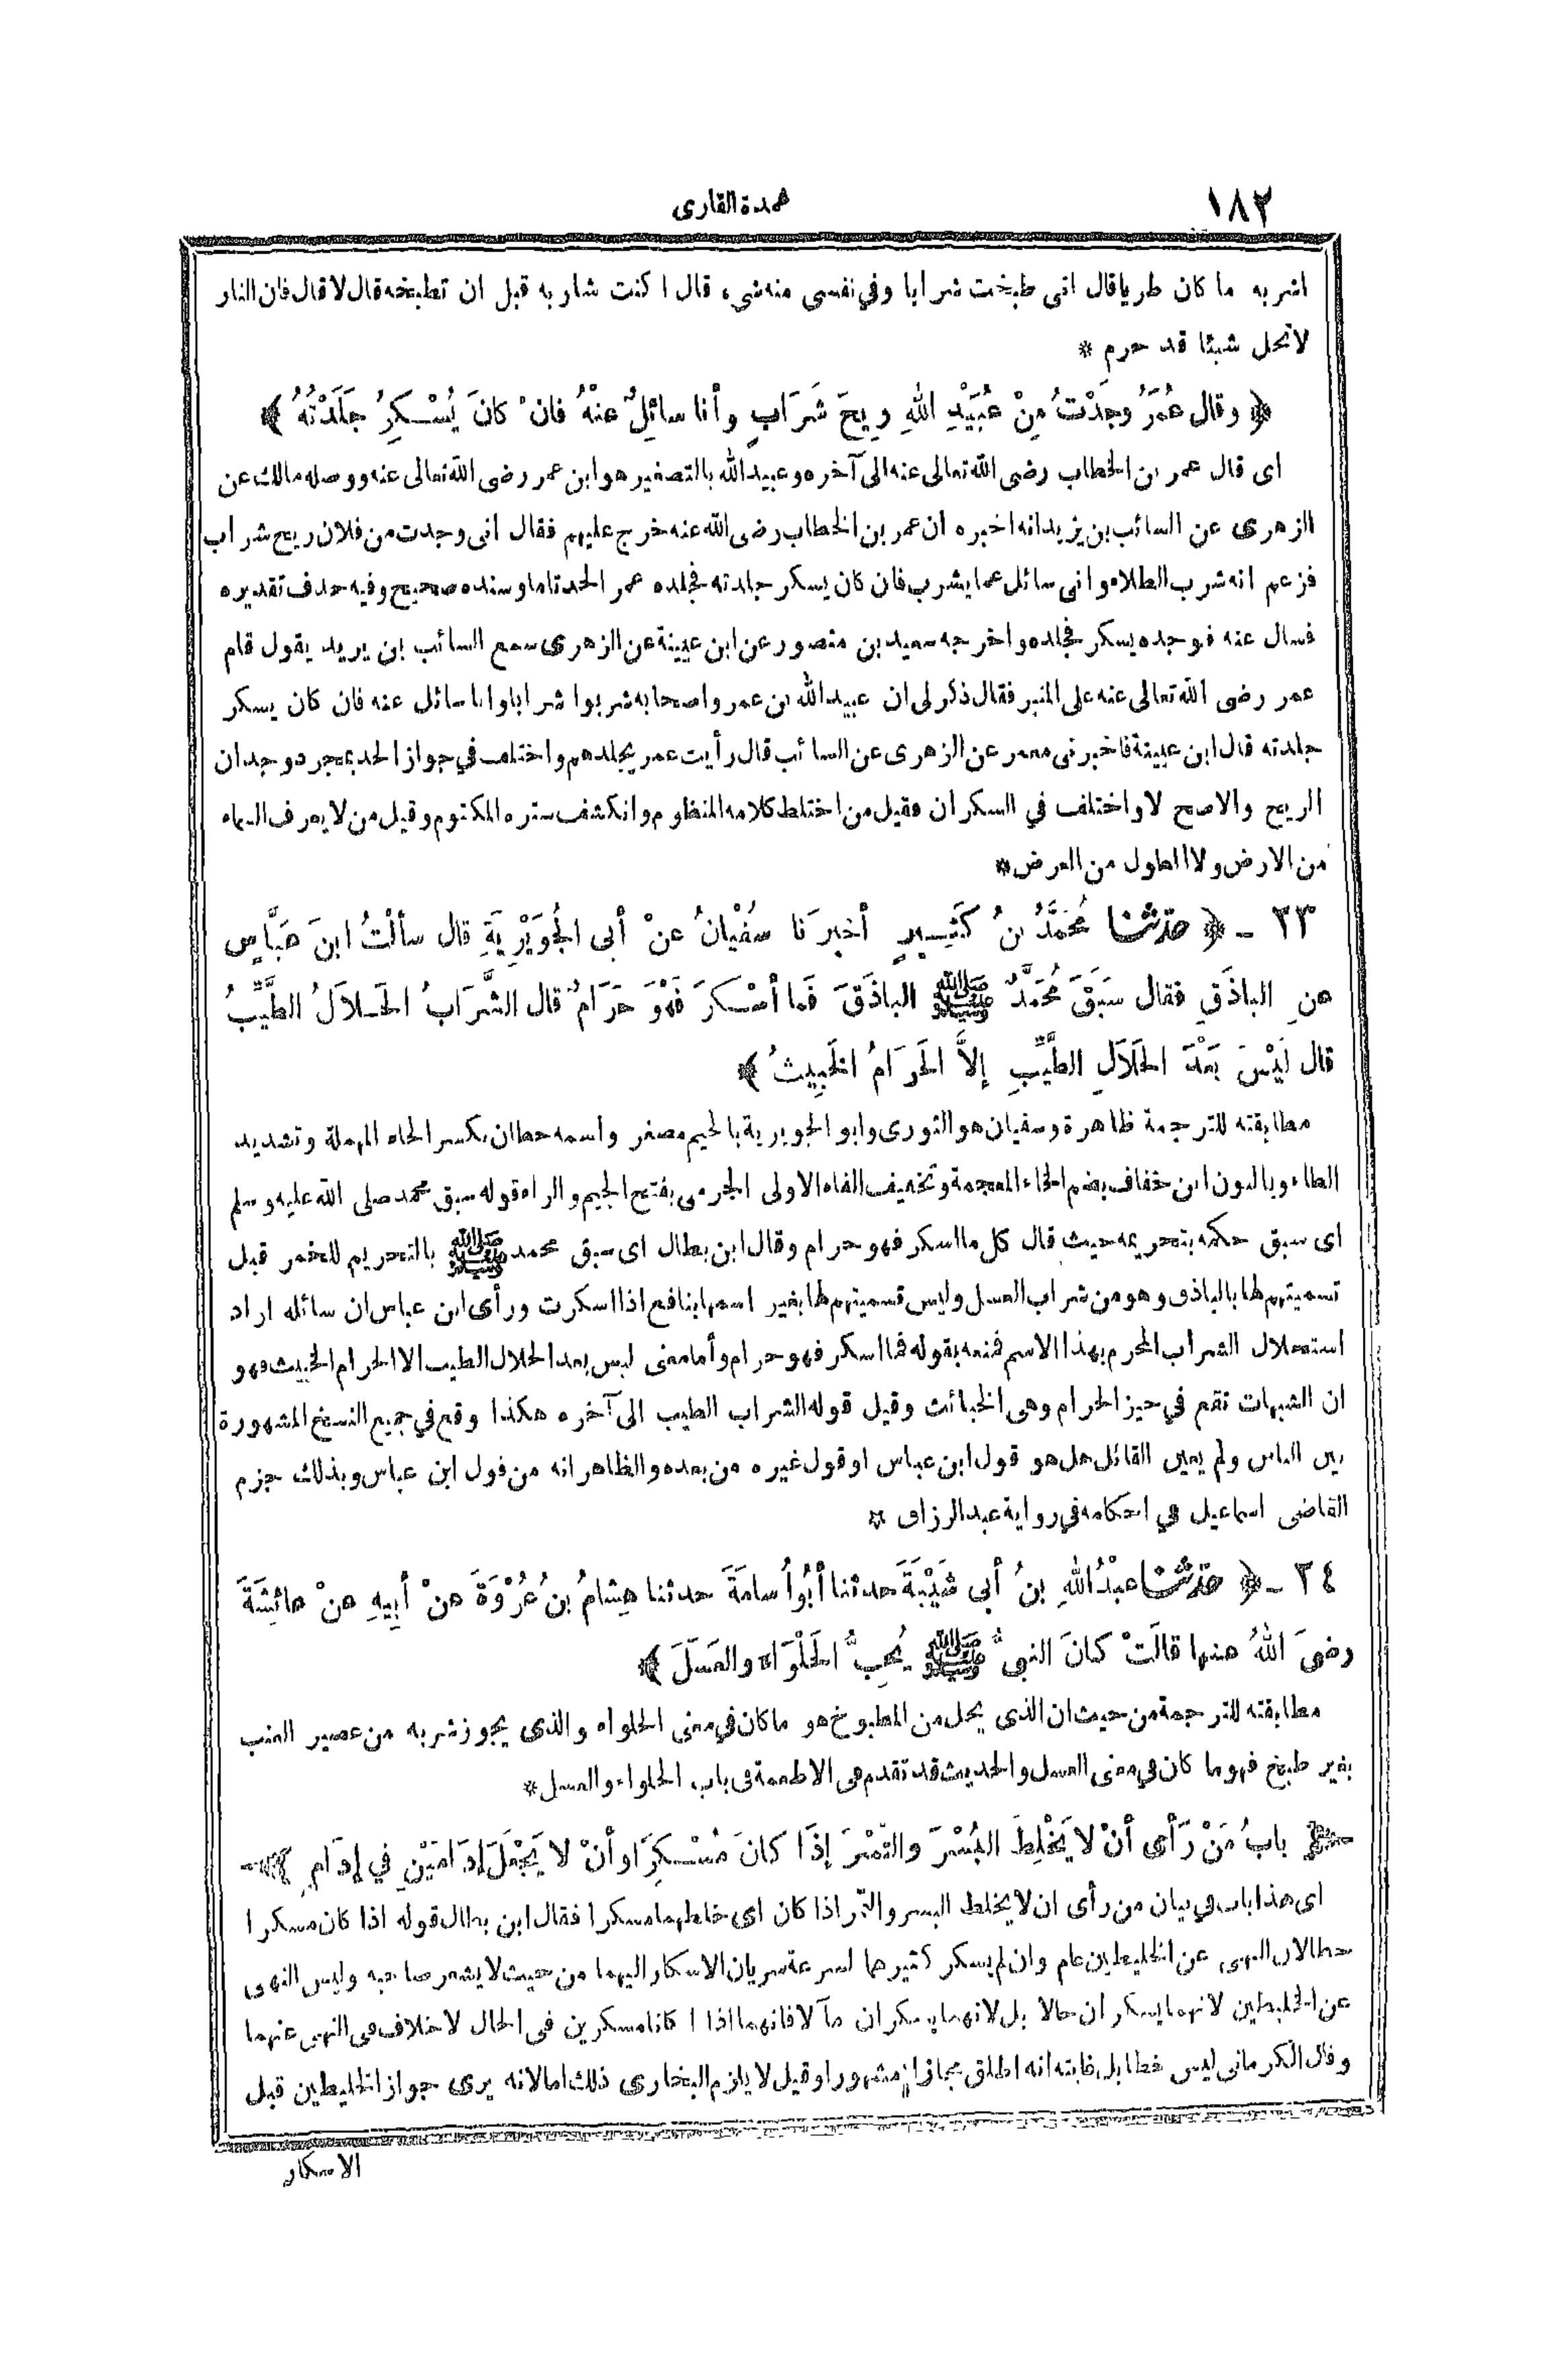 ١٨٢
عمدة القارى
اشربه ما كان طريا قال انى طبخت شرابا وفي نفسى منه شىء قال ا كنت شاربه قبل ان تطبخه قال لا قال فان النار
لا تحل شيئا قد حرم *
﴿ وقال عُمَرُ وجَدْتُ مِنْ عُبَيْدِ اللهِ رِيحَ شَرَابٍ وأنا سائِلٌ عنْهُ فانْ كانَ يُسْكِرُ جَلَدْتُهُ ﴾
اى قال عمر بن الخطاب رضى الله تعالى عنه الى آخره وعبيد الله بالتصغير هو ابن عمر رضى الله تعالى عنه ووصله مالك عن
الزهرى عن السائب بن يزيد انه اخبره ان عمر بن الخطاب رضى الله عنه خرج عليهم فقال انى وجدت من فلان ريح شراب
فزعم انه شرب الطلاء وانى سائل عما يشرب فان كان يسكر جلدته فجلده عمر الحد تاما وسنده صحيح وفيه حذف تقديره
فسال عنه فوجده يسكر فجلده واخرجه سعيد بن منصور عن ابن عيينة عن الزهرى سمع السائب بن يريد يقول قام
عمر رضى الله تعالى عنه على المنبر فقال ذكر لى ان عبيد الله بن عمر واصحابه شربوا شرابا وانا سائل عنه فان كان يسكر
جلدته قال ابن عيينة فاخبرنى معمر عن الزهرى عن السائب قال رأيت عمر يجلدهم واختلف في جواز الحد بمجرد وجدان
الريح والاصح لا واختلف في السكران فقيل من اختلط كلامه المنظوم وانكشف ستره المكتوم وقيل من لا يعرف السماء
من الارض ولا الطول من العرض *
٢٣ - ﴿ حدّثنا مُحَمَّدُ بنُ كَثِيرٍ أخبرَنا سُفْيانُ عنْ أبى الجُوَيْرِيَةِ قال سألْتُ ابنَ عَبَّاسٍ
عنِ الباذَقِ فقال سَبَقَ مُحَمَّدٌ ﷺ الباذَقَ فَما أسْكَرَ فَهْوَ حَرَامٌ قال الشَّرَابُ الحَلاَلُ الطَّيِّبُ
قال لَيْسَ بَعْدَ الحَلاَلِ الطَّيِّبِ إلاَّ الحَرَامُ الخَبِيثُ ﴾
مطابقته للترجمة ظاهرة وسفيان هو الثورى وابو الجويرية بالجيم مصغر واسمه حطان بكسر الحاء المهملة وتشديد
الطاء وبالنون ابن خفاف بضم الخاء المعجمة وتخفيف الفاء الاولى الجرمى بفتح الجيم والراء قوله سبق محمد صلى الله عليه وسلم
اى سبق حكمه بتحريمه حيث قال كل ما اسكر فهو حرام وقال ابن بطال اى سبق محمد ﷺ بالتحريم للخمر قبل
تسميتهم لها بالباذق وهو من شراب العسل وليس تسميتهم لها بغير اسمها بنافع اذا اسكرت ورأى ابن عباس ان سائله اراد
استحلال الشراب المحرم بهذا الاسم فمنعه بقوله فما اسكر فهو حرام وأما معنى ليس بعد الحلال الطيب الا الحرام الخبيث فهو
ان الشبهات تقع في حيز الحرام وهى الخبائث وقيل قوله الشراب الطيب الى آخره هكذا وقع في جميع النسخ المشهورة
بين الناس ولم يعين القائل هل هو قول ابن عباس او قول غيره من بعده والظاهر انه من قول ابن عباس وبذلك جزم
القاضى اسماعيل في احكامه في رواية عبد الرزاق *
٢٤ - ﴿ حدّثنا عبْدُ اللهِ بنُ أبى شَيْبَةَ حدثنا أبُو اُسامَةَ حدثنا هِشامُ بنُ عُرْوَةَ عنْ أبِيهِ عنْ عائِشَةَ
رضىَ اللهُ عنها قالَتْ كانَ النبىُّ ﷺ يُحِبُّ الحَلْوَاءَ والعَسَلَ ﴾
مطابقته للترجمة من حيث ان الذى يحل من المطبوخ هو ما كان في معنى الحلواء والذى يجوز شربه من عصير العنب
بغير طبخ فهو ما كان في معنى العسل والحديث قد تقدم فى الاطعمة فى باب الحلواء والعسل *
بابُ مَنْ رَأى أنْ لا يَخْلِطَ البُسْرَ والتَّمْرَ إذَا كانَ مُسْكِرًا وأنْ لا يَجْعَلَ إدَامَيْنِ في إدَامٍ
اى هذا باب في بيان من رأى ان لا يخلط البسر والتمر اذا كان اى خلطهما مسكرا فقال ابن بطال قوله اذا كان مسكرا
خطا لان النهى عن الخليطين عام وان لم يسكر كثيرهما لسرعة سريان الاسكار اليهما من حيث لا يشعر صاحبه وليس النهى
عن الخليطين لانهما يسكران حالا بل لانهما يسكران مآلا فانهما اذا كانا مسكرين فى الحال لا خلاف فى النهى عنهما
وقال الكرمانى ليس خطا بل غايته انه اطلق مجازا مشهورا وقيل لا يلزم البخارى ذلك اما لانه يرى جواز الخليطين قبل
الاسكار